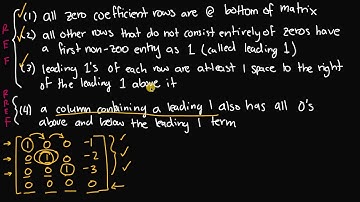 REF
(1) all zero coefficient rows are @ bottom of matrix
(2) all other rows that do not consist entirely of zeros have
a first non-zero entry as 1 (called leading 1)
(3) leading 1's of each row are at least 1 space to the right
of the leading 1 above it
RREF
(4) a column combining a leading 1 also has all 0's
above and below the leading 1 term
1 0 0 -1
0 1 0 -2
0 0 1 -3
0 0 0 0